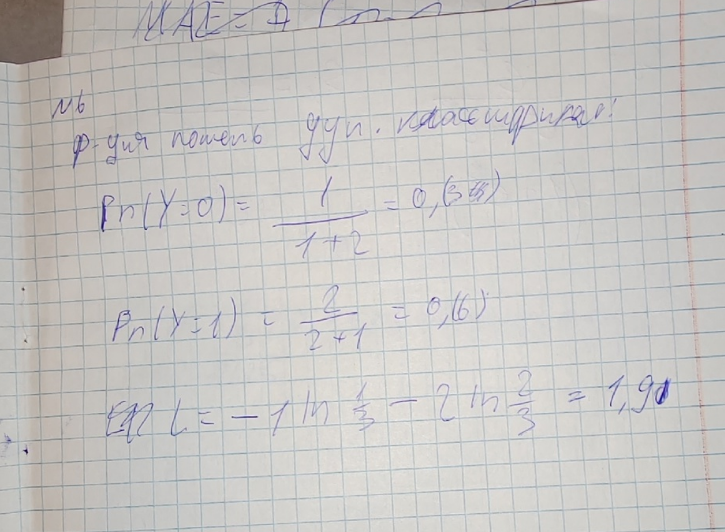 MAE =
N6
ф-ция потерь для классификац:
Pn(Y=0) = 1/(1+2) = 0,(3)
Pn(Y=1) = 2/(2+1) = 0,(6)
L = -1 ln 1/3 - 2 ln 2/3 = 1,91